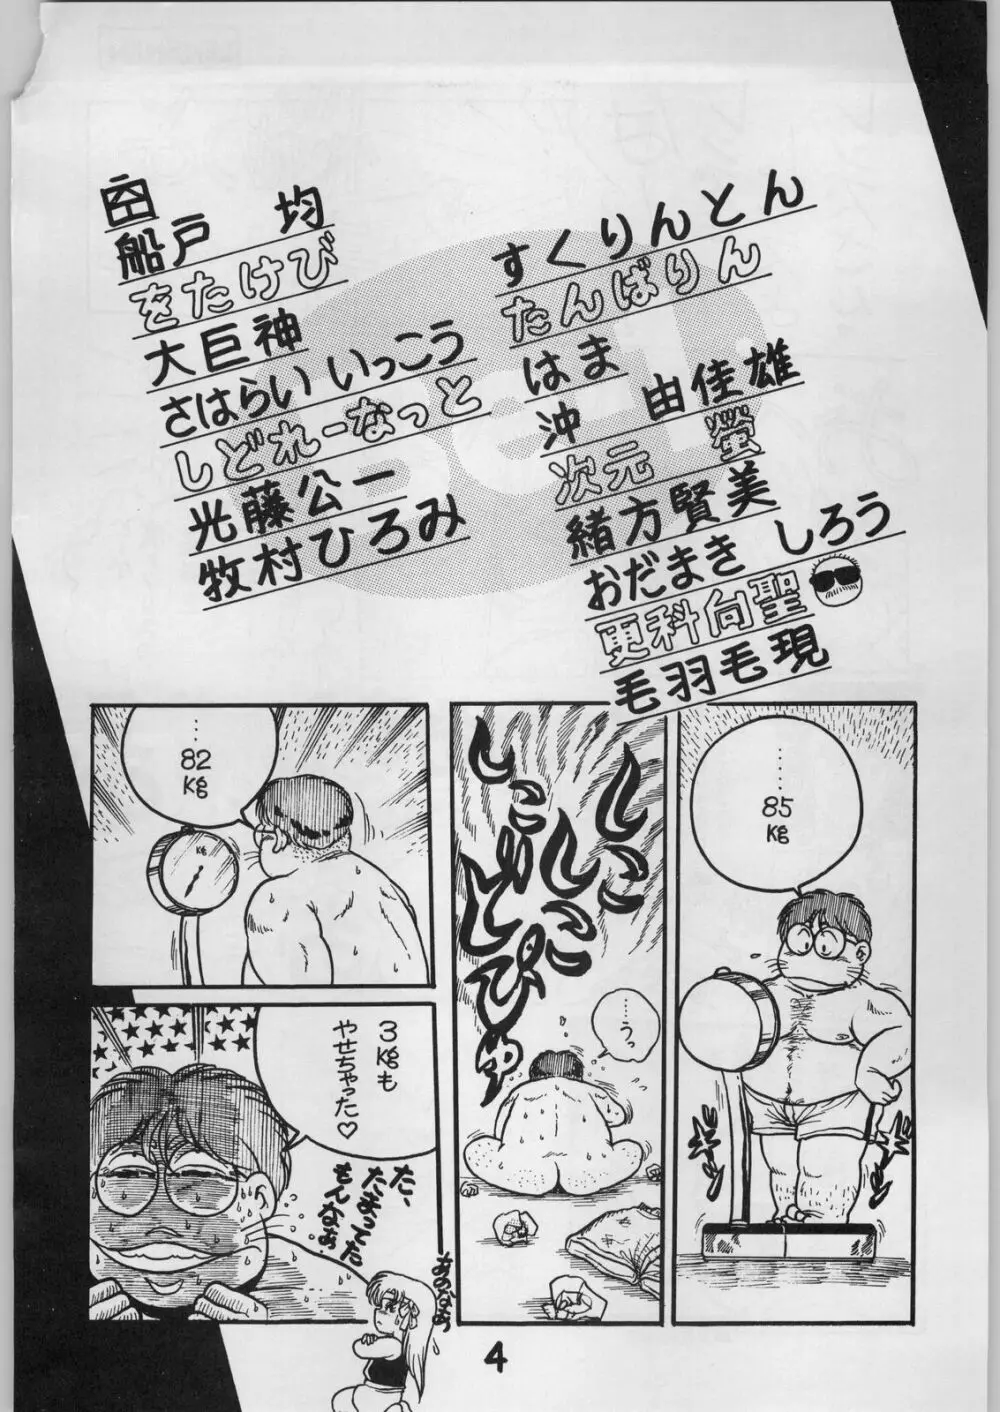 すくりんとん
たんばりん
はま
沖 由佳雄
次元 螢
緒方賢美
おだまき しろう
更科向聖
毛羽毛現
船戸 均
をたけび
大巨神
さはらい いっこう
しどれーなっと
光藤公一
牧村ひろみ
……
85
kg
しこしこ
しこしこ
どぴゅ
……うっ
……
82
kg
kg
3kgも
やせちゃった♡
た、
たまってた
もんなぁ。
あのなぁっ
4